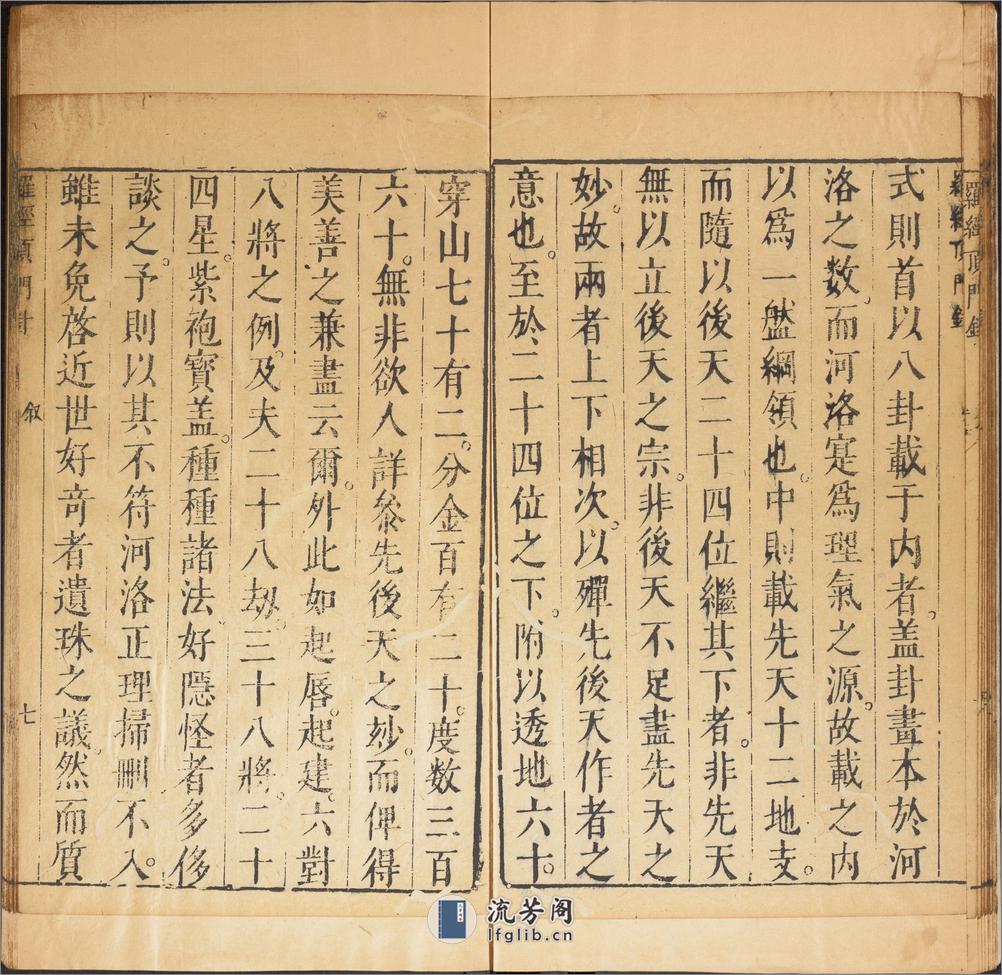 羅經頂門針
式則首以八卦載于内者。盖卦畫本於河
洛之数。而河洛寔爲理氣之源。故載之内
以爲一盤綱領也。中則載先天十二地支。
而隨以後天二十四位繼其下者。非先天
無以立後天之宗。非後天不足盡先天之
妙。故兩者上下相次。以殫先後天作者之
意也。至於二十四位之下。附以透地六十。
穿山七十有二。分金百有二十。度数三百
六十。無非欲人詳叅先後天之妙。而俾得
美善之兼盡云爾。外此如起唇。起建。六對
八將之例。及夫二十八刼。三十八將。二十
四星。紫袍寳盖。種種諸法好隱怪者多侈
談之。予則以其不符河洛正理掃刪不入。
雖未免啓近世好奇者遺珠之議。然而質
羅經頂門針
叙
七
流芳阁
lfglib.cn